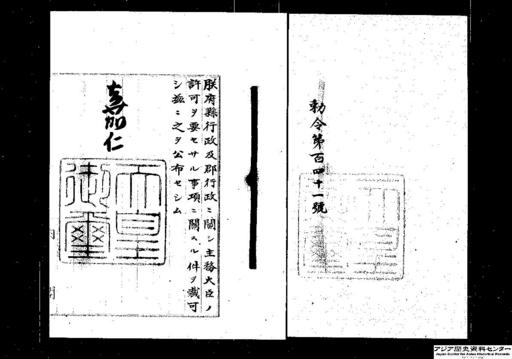 勅令第百四十一號
朕府縣行政及郡行政ニ關シ主務大臣ノ
許可ヲ要セサル事項ニ關スル件ヲ裁可
シ茲ニ之ヲ公布セシム
嘉仁
天皇
御璽
内閣
アジア歴史資料センター
Japan Center for Asian Historical Records